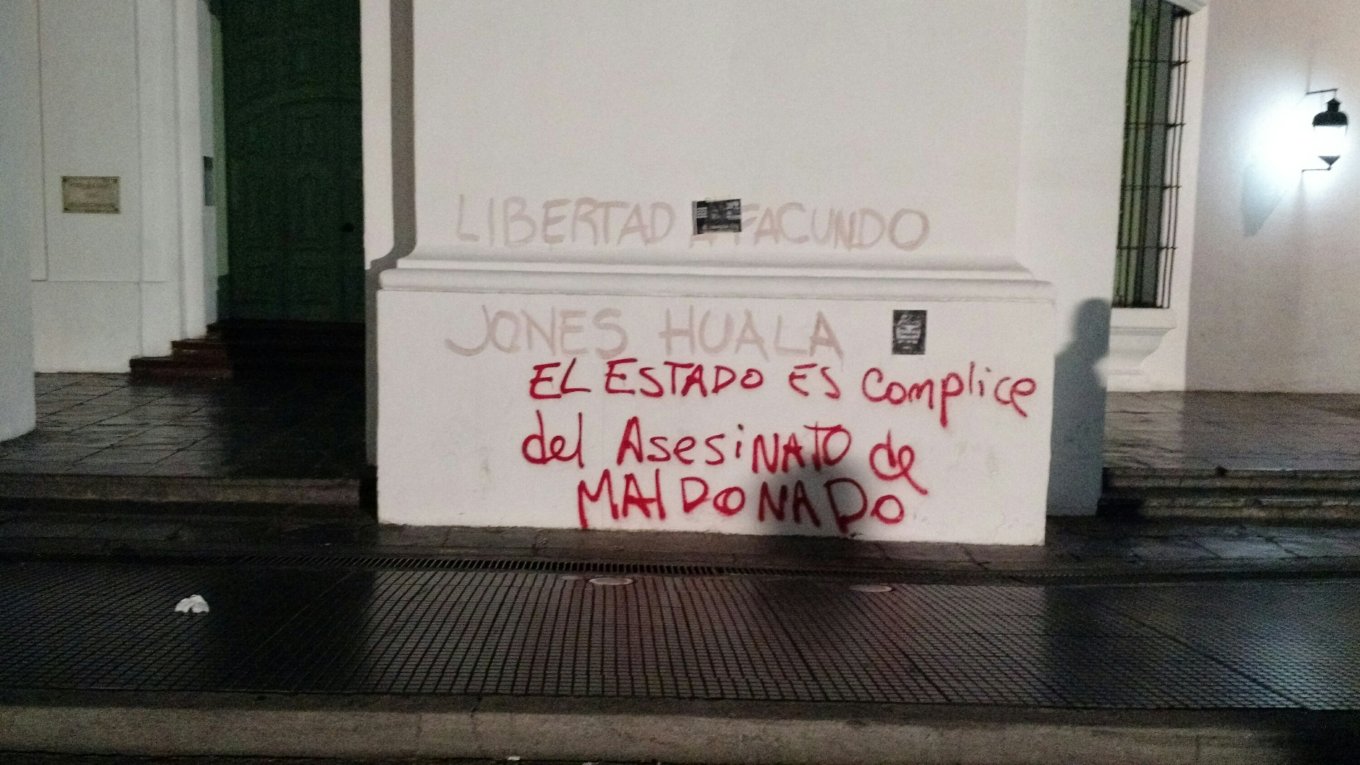 LIBERTAD A FACUNDO
JONES HUALA
EL ESTADO ES complice
del AsesiNATO de
MAlDONADO